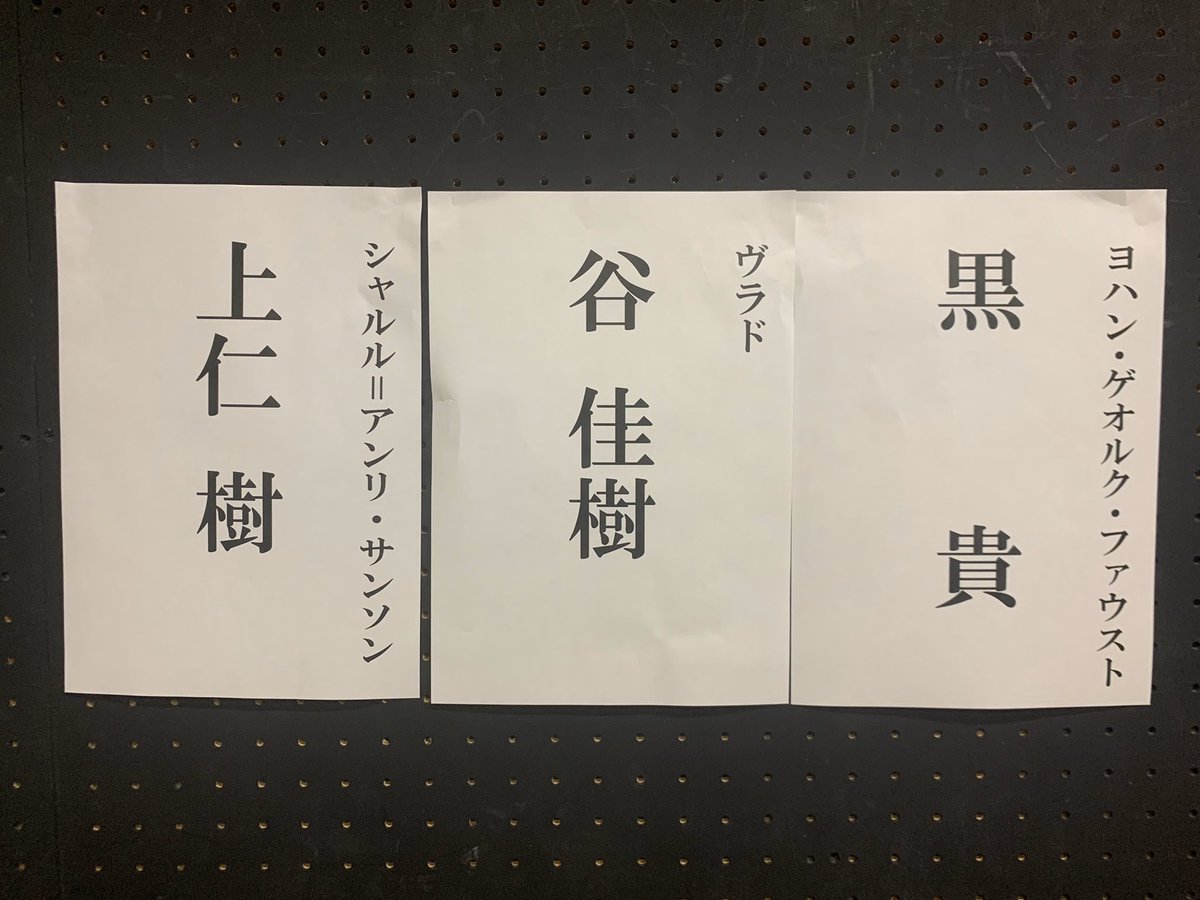 ヨハン・ゲオルク・ファウスト
黒 貴
ヴラド
谷 佳樹
シャルル＝アンリ・サンソン
上仁 樹